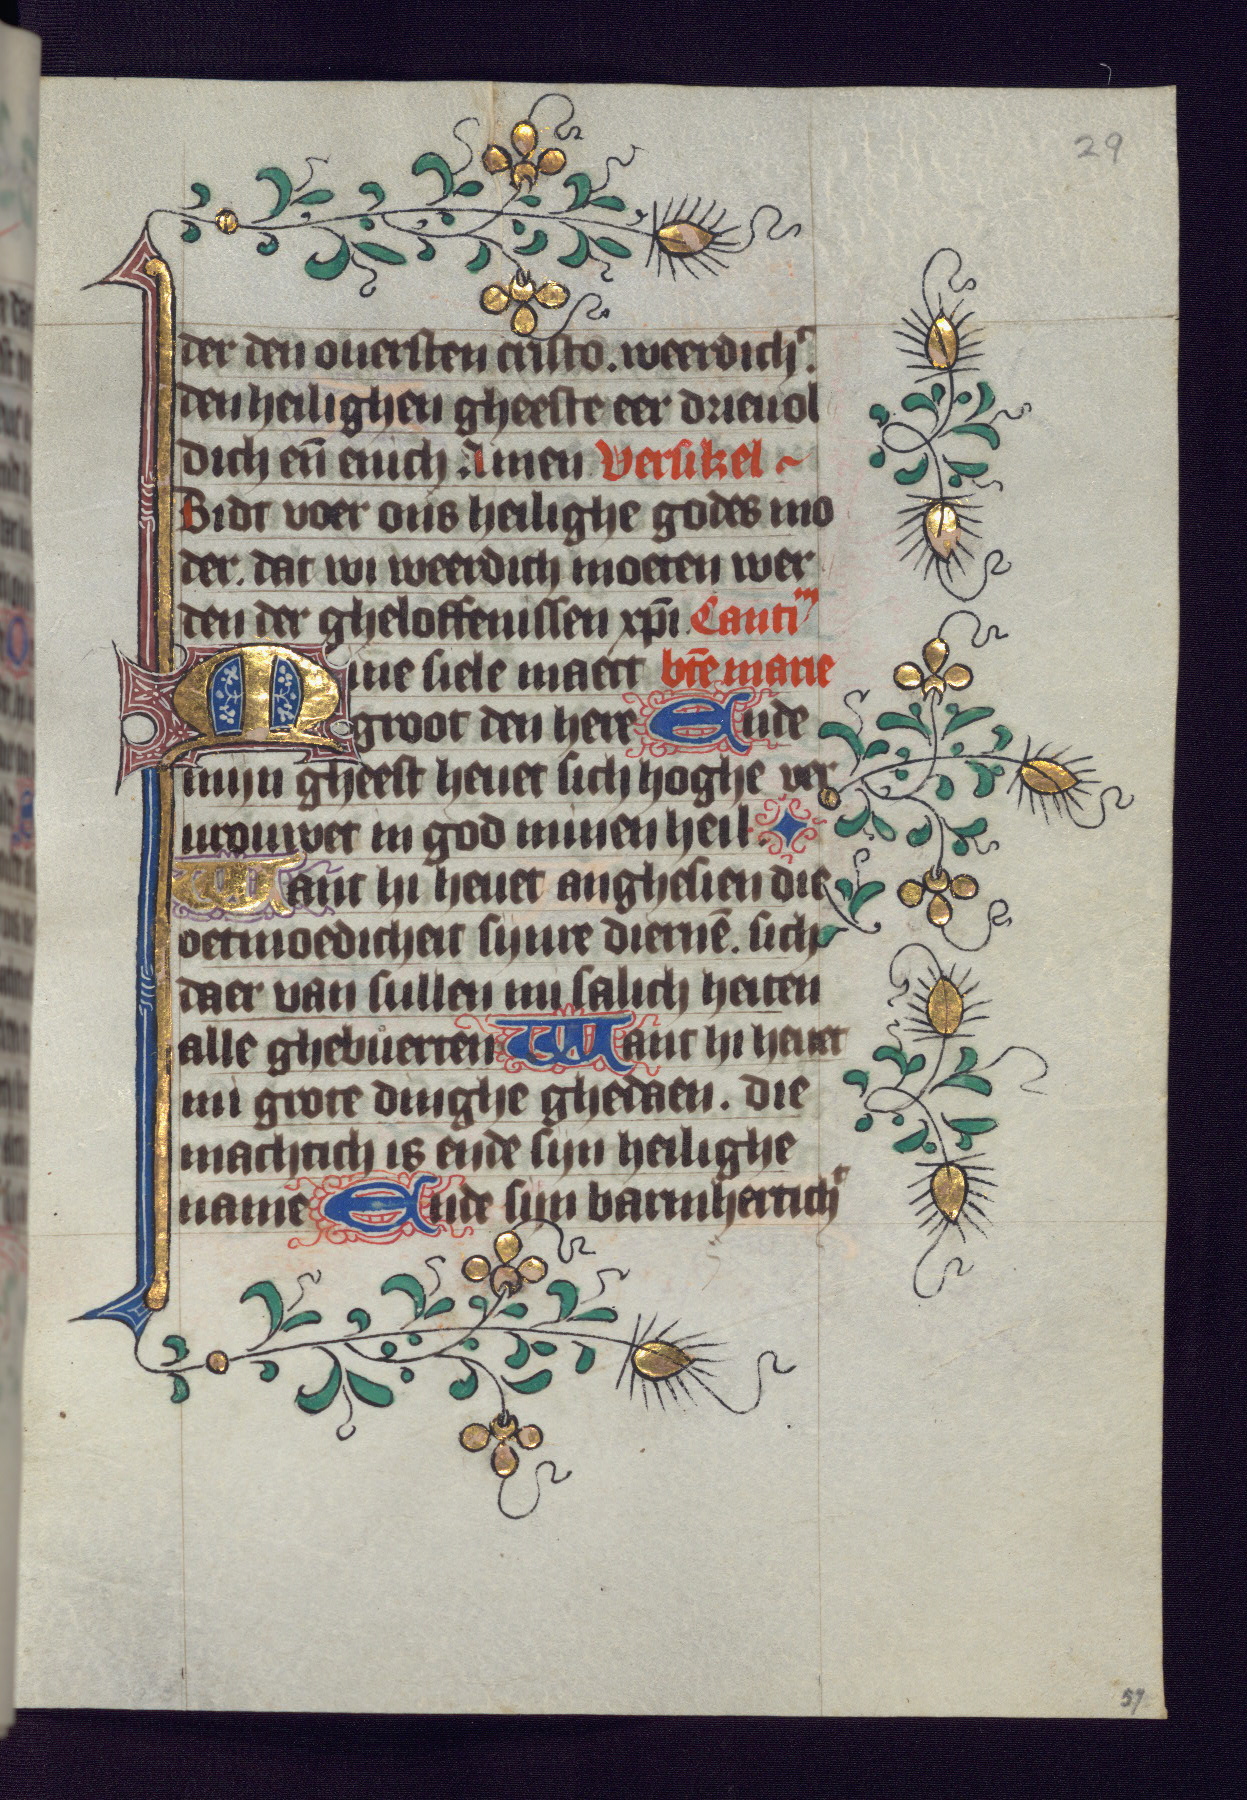 29
der den ouersten cristo. weerdich^t.
den heilighen gheeste eer drieuol
dich en̄ enich . Amen Versikel ~
Bidt voer ons heilighe godes mo
der. dat wi weerdich moeten wer
den der gheloffenissen xp̄i. Canti^m
Mine siele maect btē marie
groot den here Ende
mijn gheest heuet sich hoghe ver
urouwet in god minen heil.
Want hi heuet anghesien die
oetmoedicheit sijnre diernē. sich
daer van sullen mi salich heiten
alle ghebůerten Want hi heuet
mi grote dinghe ghedaen. die
machtich is ende sijn heilighe
name Ende sijn barmhertich^t
57